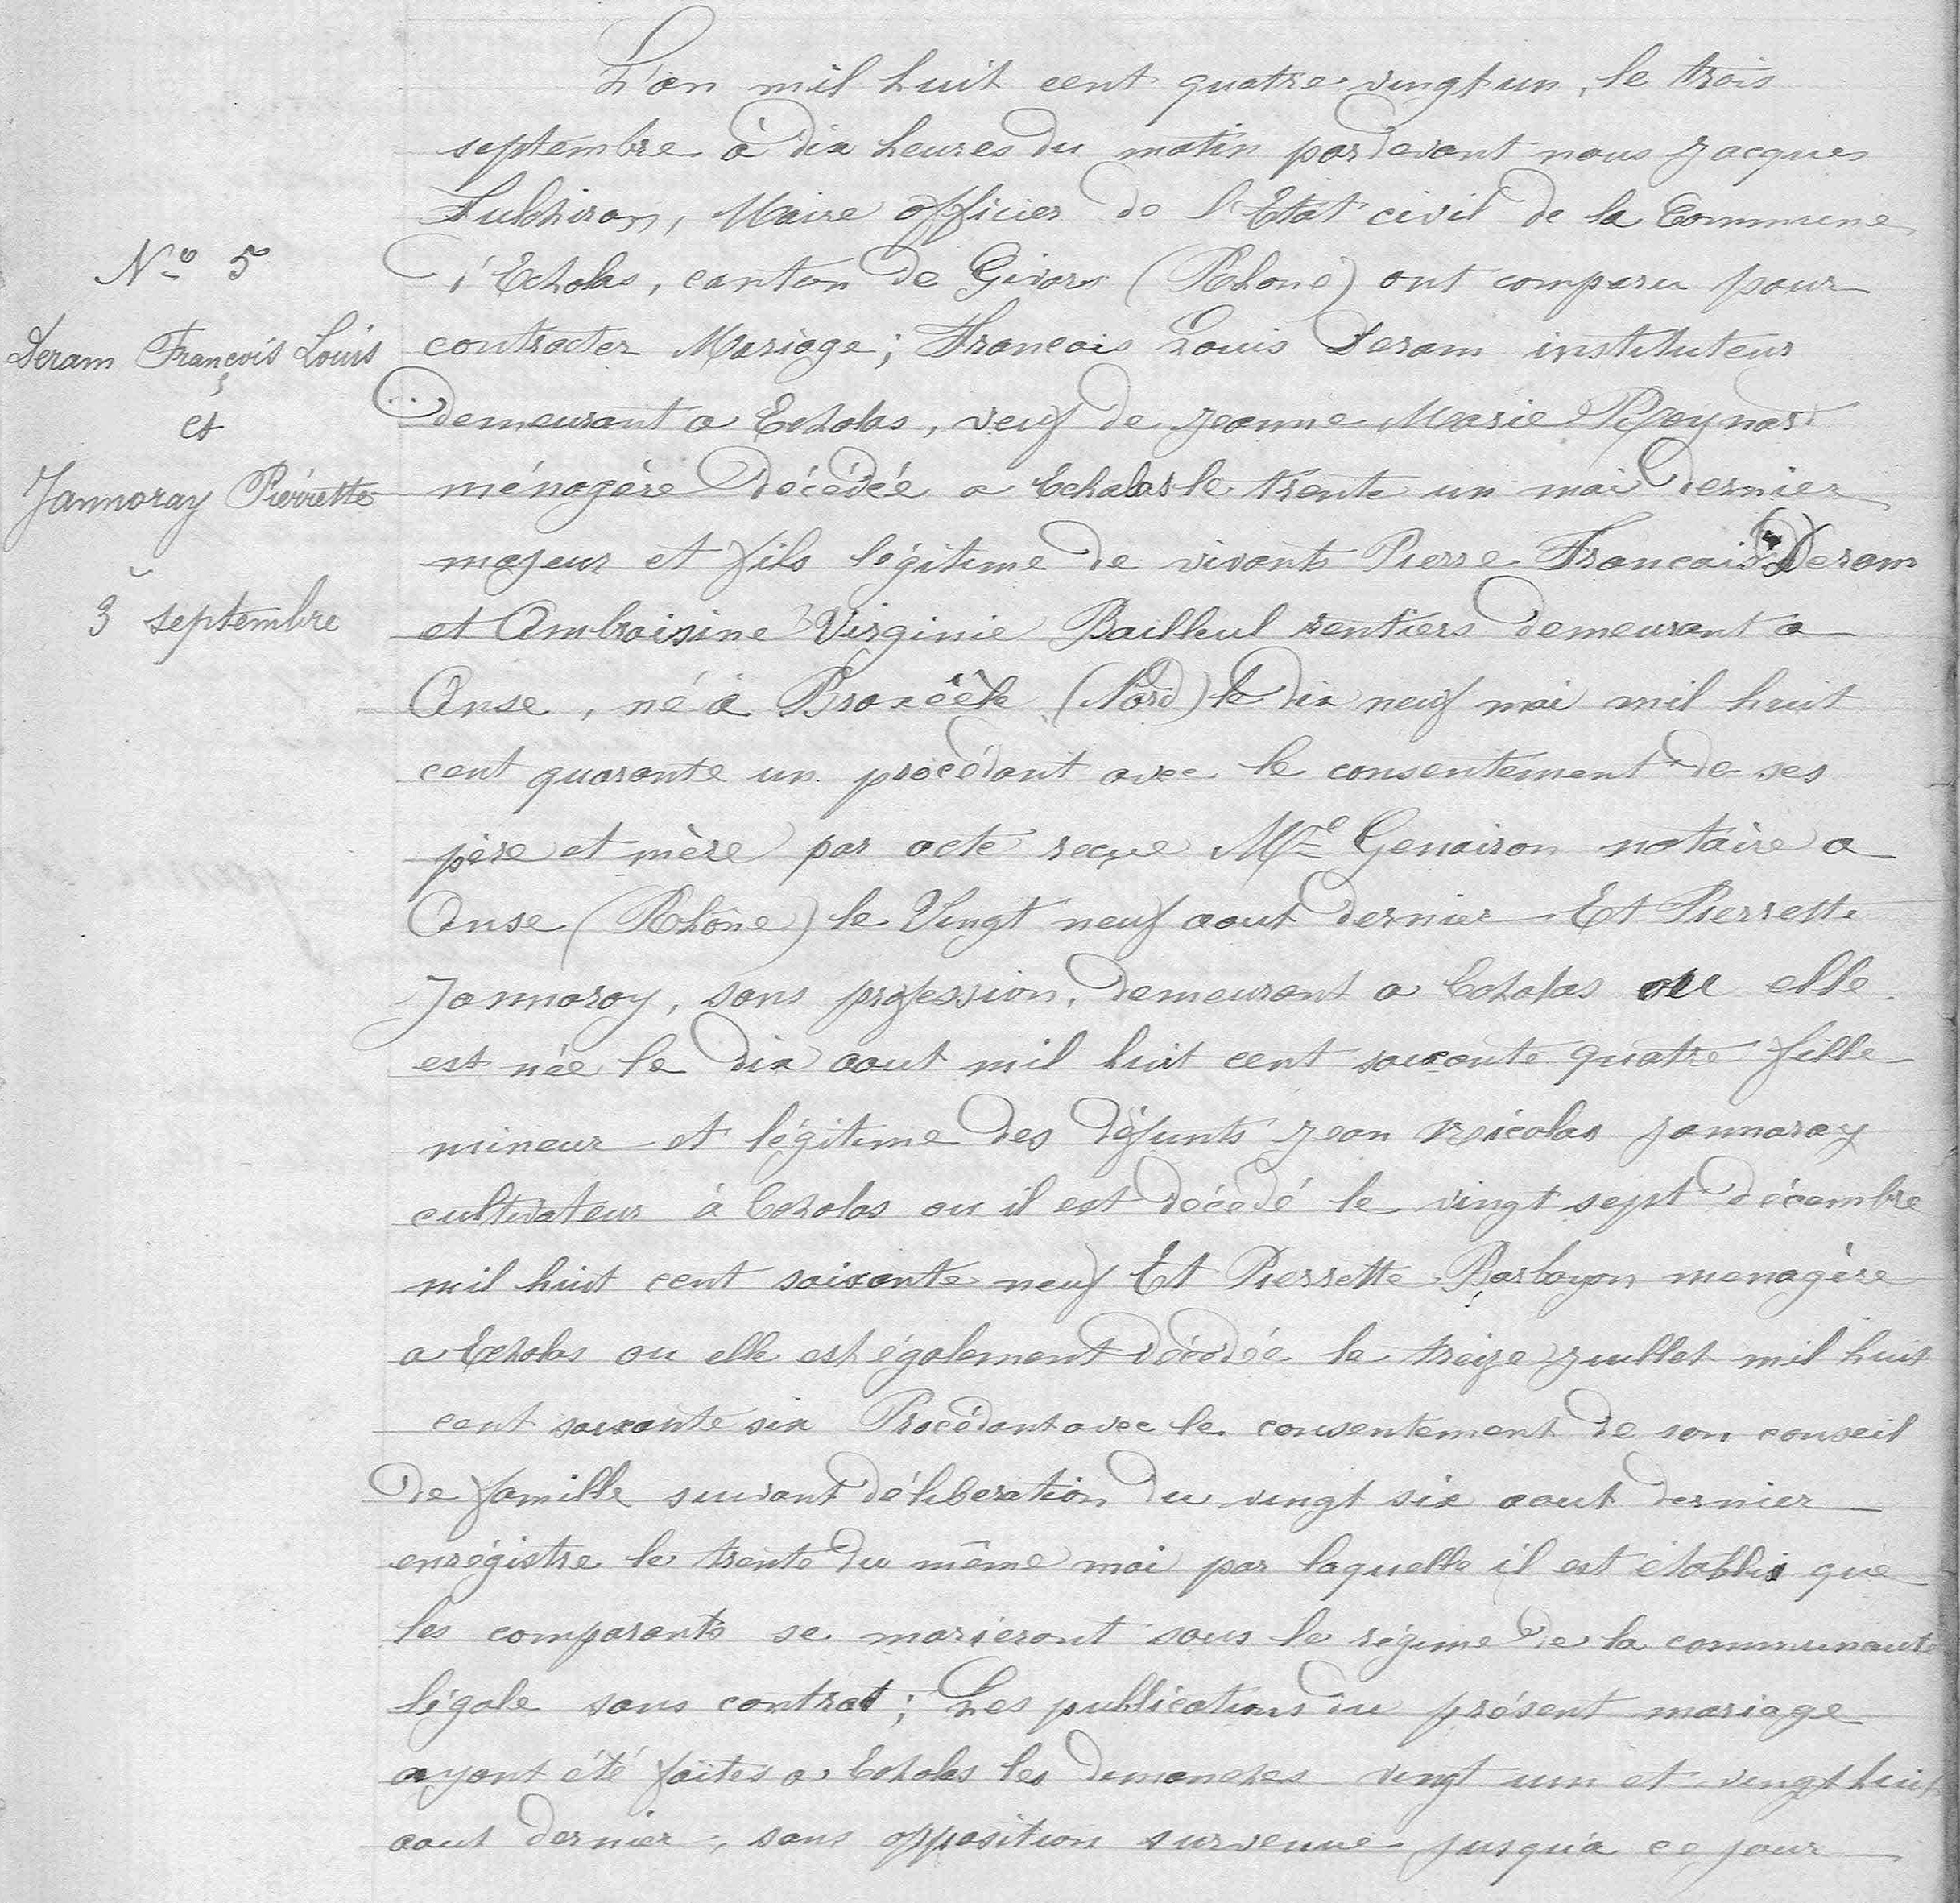 L'an mil huit cent quatre-vingt un, le trois
septembre à dix heures du matin par devant nous Jacques
Fulchiron, Maire officier de l'Etat civil de la Commune
d'Echalas, canton de Givors (Rhone) ont comparu pour
contracter Mariage; Francois Louis Deram instituteur
demeurant a Echalas, veuf de Jeanne Marie Reynard
ménagère décédée a Echalas le trente un mai dernier
majeur et fils légitime de vivants Pierre Francois Deram
et Ambroisine Virginie Bailleul rentiers demeurant a
Anse, né à Broxèèle (Nord) le dix neuf mai mil huit
cent quarante un procédant avec le consentement de ses
père et mère par acte reçue Me Genairon notaire a
Anse (Rhône) le Vingt neuf aout dernier - Et Pierrette
Jannoray, sans profession, demeurant a Echalas ou elle
est née le dix aout mil huit cent soixante quatre fille
mineur et légitime des défunts Jean Nicolas Jannaray
cultivateur à Echalas ou il est décédé le vingt sept décembre
mil huit cent soixante neuf Et Pierrette Barbayon menagère
a Echalas ou elle est également décédée le treize Juillet mil huit
cent soixante six Procédant avec le consentement de son conseil
de famille suivant délibération du vingt six aout dernier
enrégistre le trente du même moi par laquelle il est établis que
les comparants se marieront sous le régime de la communauté
légale sans contrat; Les publications du présent mariage
ayant été faites a Echalas les dimanches vingt un et vingt huit
aout dernier, sans opposition survenue jusqu'a ce jour
No 5
Deram François Louis
et
Jannoray Pierrette
3 septembre